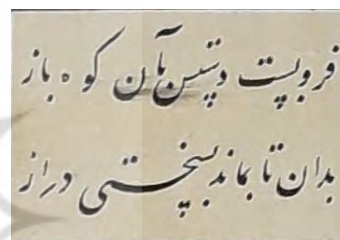 فروبست دستش بآن کوه باز
بدان تا بماند بسختی دراز